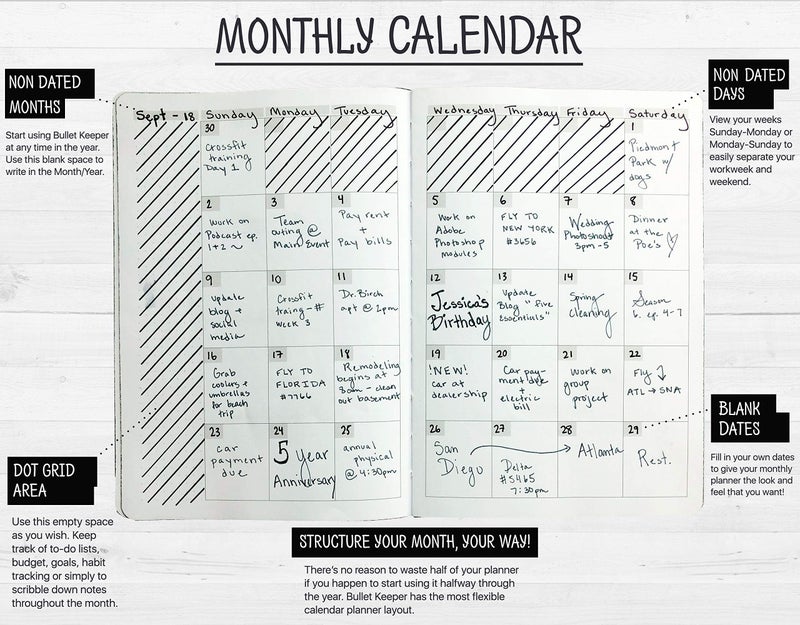 MONTHLY CALENDAR
NON DATED
MONTHS
Start using Bullet Keeper
at any time in the year.
Use this blank space to
write in the Month/Year.
NON DATED
DAYS
View your weeks
Sunday-Monday or
Monday-Sunday to
easily separate your
workweek and
weekend.
Sept - 18 Sunday Monday Tuesday Wednesday Thursday Friday Saturday
30
Crossfit
training
Day 1
1
Piedmont
Park w/
dogs
2
Work on
Podcast ep.
1+2 ~
3
Team
outing @
Main Event
4
Pay rent
+
Pay bills
5
Work on
Adobe
Photoshop
modules
6
FLY TO
NEW YORK
#3656
7
Wedding
Photoshoot
3pm-5
8
Dinner
at the
Poe's ♡
9
Update
blog +
social
media
10
Crossfit
traing-#
week 3
11
Dr. Birch
apt @ 2pm
12
Jessica's
Birthday
13
Update
Blog "five
Essentials"
14
Spring
Cleaning
15
Season
6. ep. 4-7
16
Grab
coolers +
umbrellas
for beach
trip
17
FLY TO
FLORIDA
#7766
18
Remodeling
begins at
8am - clean
out basement
19
!NEW!
car at
dealership
20
Car pay-
ment due
+
electric
bill
21
work on
group
project
22
Fly
ATL → SNA
23
car
payment
due
24
5 Year
Anniversary
25
annual
physical
@ 4:30pm
26
San
Diego
27
Delta
#5465
7:30pm
28
Atlanta
29
Rest.
DOT GRID
AREA
Use this empty space
as you wish. Keep
track of to-do lists,
budget, goals, habit
tracking or simply to
scribble down notes
throughout the month.
BLANK
DATES
Fill in your own dates
to give your monthly
planner the look and
feel that you want!
STRUCTURE YOUR MONTH, YOUR WAY!
There's no reason to waste half of your planner
if you happen to start using it halfway through
the year. Bullet Keeper has the most flexible
calendar planner layout.